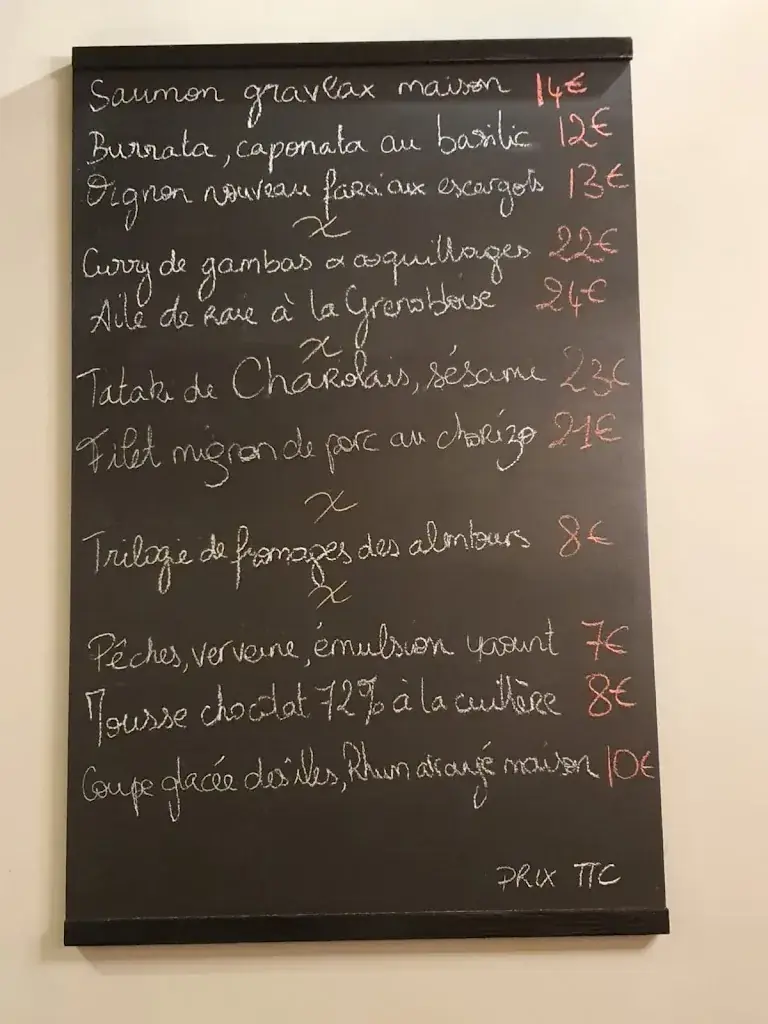 Saumon gravlax maison 14€
Burrata, caponata au basilic 12€
Oignon nouveau farci aux escargots 13€
Curry de gambas & coquillages 22€
Aile de Raie à la Grenobloise 24€
Tataki de Charolais, sésame 23€
Filet mignon de porc au chorizo 21€
Trilogie de fromages des alentours 8€
Pêches, verveine, émulsion yaourt 7€
Mousse chocolat 72% à la cuillère 8€
Coupe glacée des îles, Rhum arrangé maison 10€
PRIX TTC